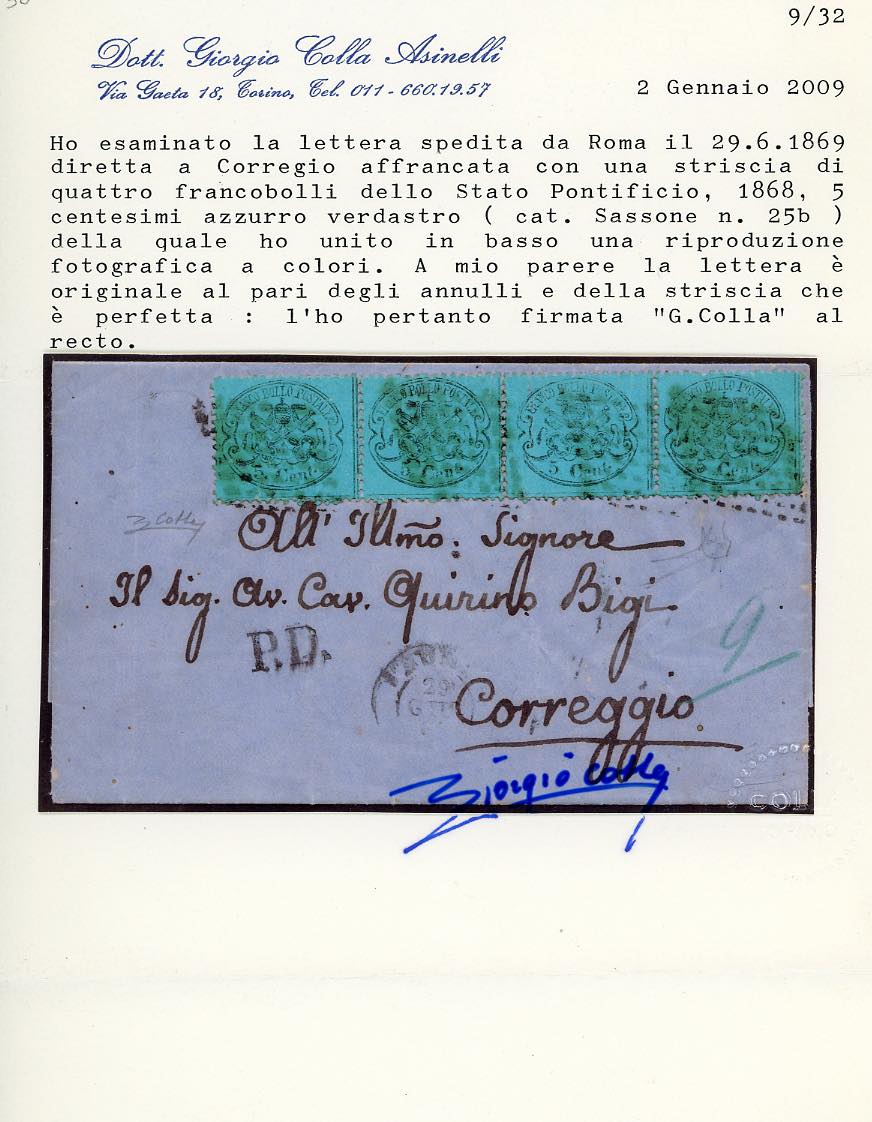 9/32
Dott. Giorgio Colla Asinelli
Via Gaeta 18, Torino, Tel. 011 - 660.19.57
2 Gennaio 2009
Ho esaminato la lettera spedita da Roma il 29.6.1869
diretta a Corregio affrancata con una striscia di
quattro francobolli dello Stato Pontificio, 1868, 5
centesimi azzurro verdastro ( cat. Sassone n. 25b )
della quale ho unito in basso una riproduzione
fotografica a colori. A mio parere la lettera è
originale al pari degli annulli e della striscia che
è perfetta : l'ho pertanto firmata "G.Colla" al
recto.
FRANCO BOLLO POSTALE FRANCO BOLLO POSTALE FRANCO BOLLO POSTALE FRANCO BOLLO POSTALE
5 Cent. 5 Cent. 5 Cent. 5 Cent.
G Colla
All' Illmo: Signore
Il Sig. Av. Cav. Quirino Bigi.
P.D.
9
29
Correggio
Giorgio Colla
COL